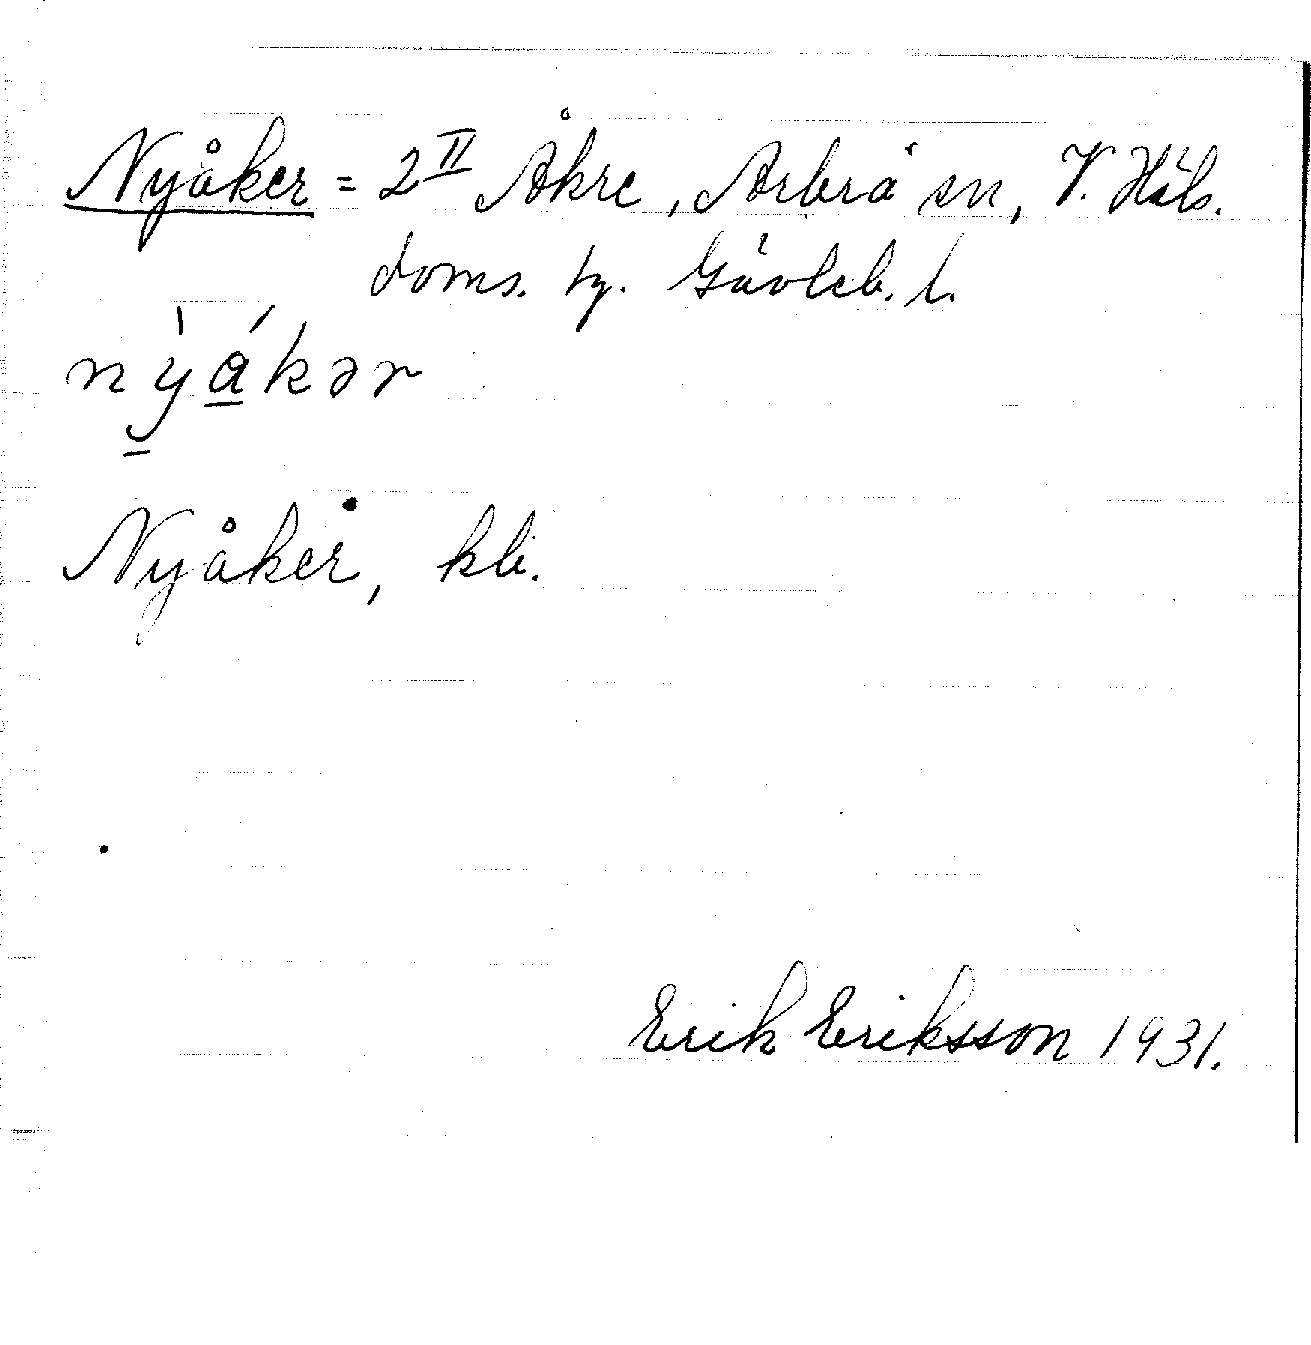 Nyåker = 2 II Åkre, Arbrå sn, V. Häls.
doms. tg. Gävleb. l.
nỳákər
Nyåker, kb.
Erik Eriksson 1931.